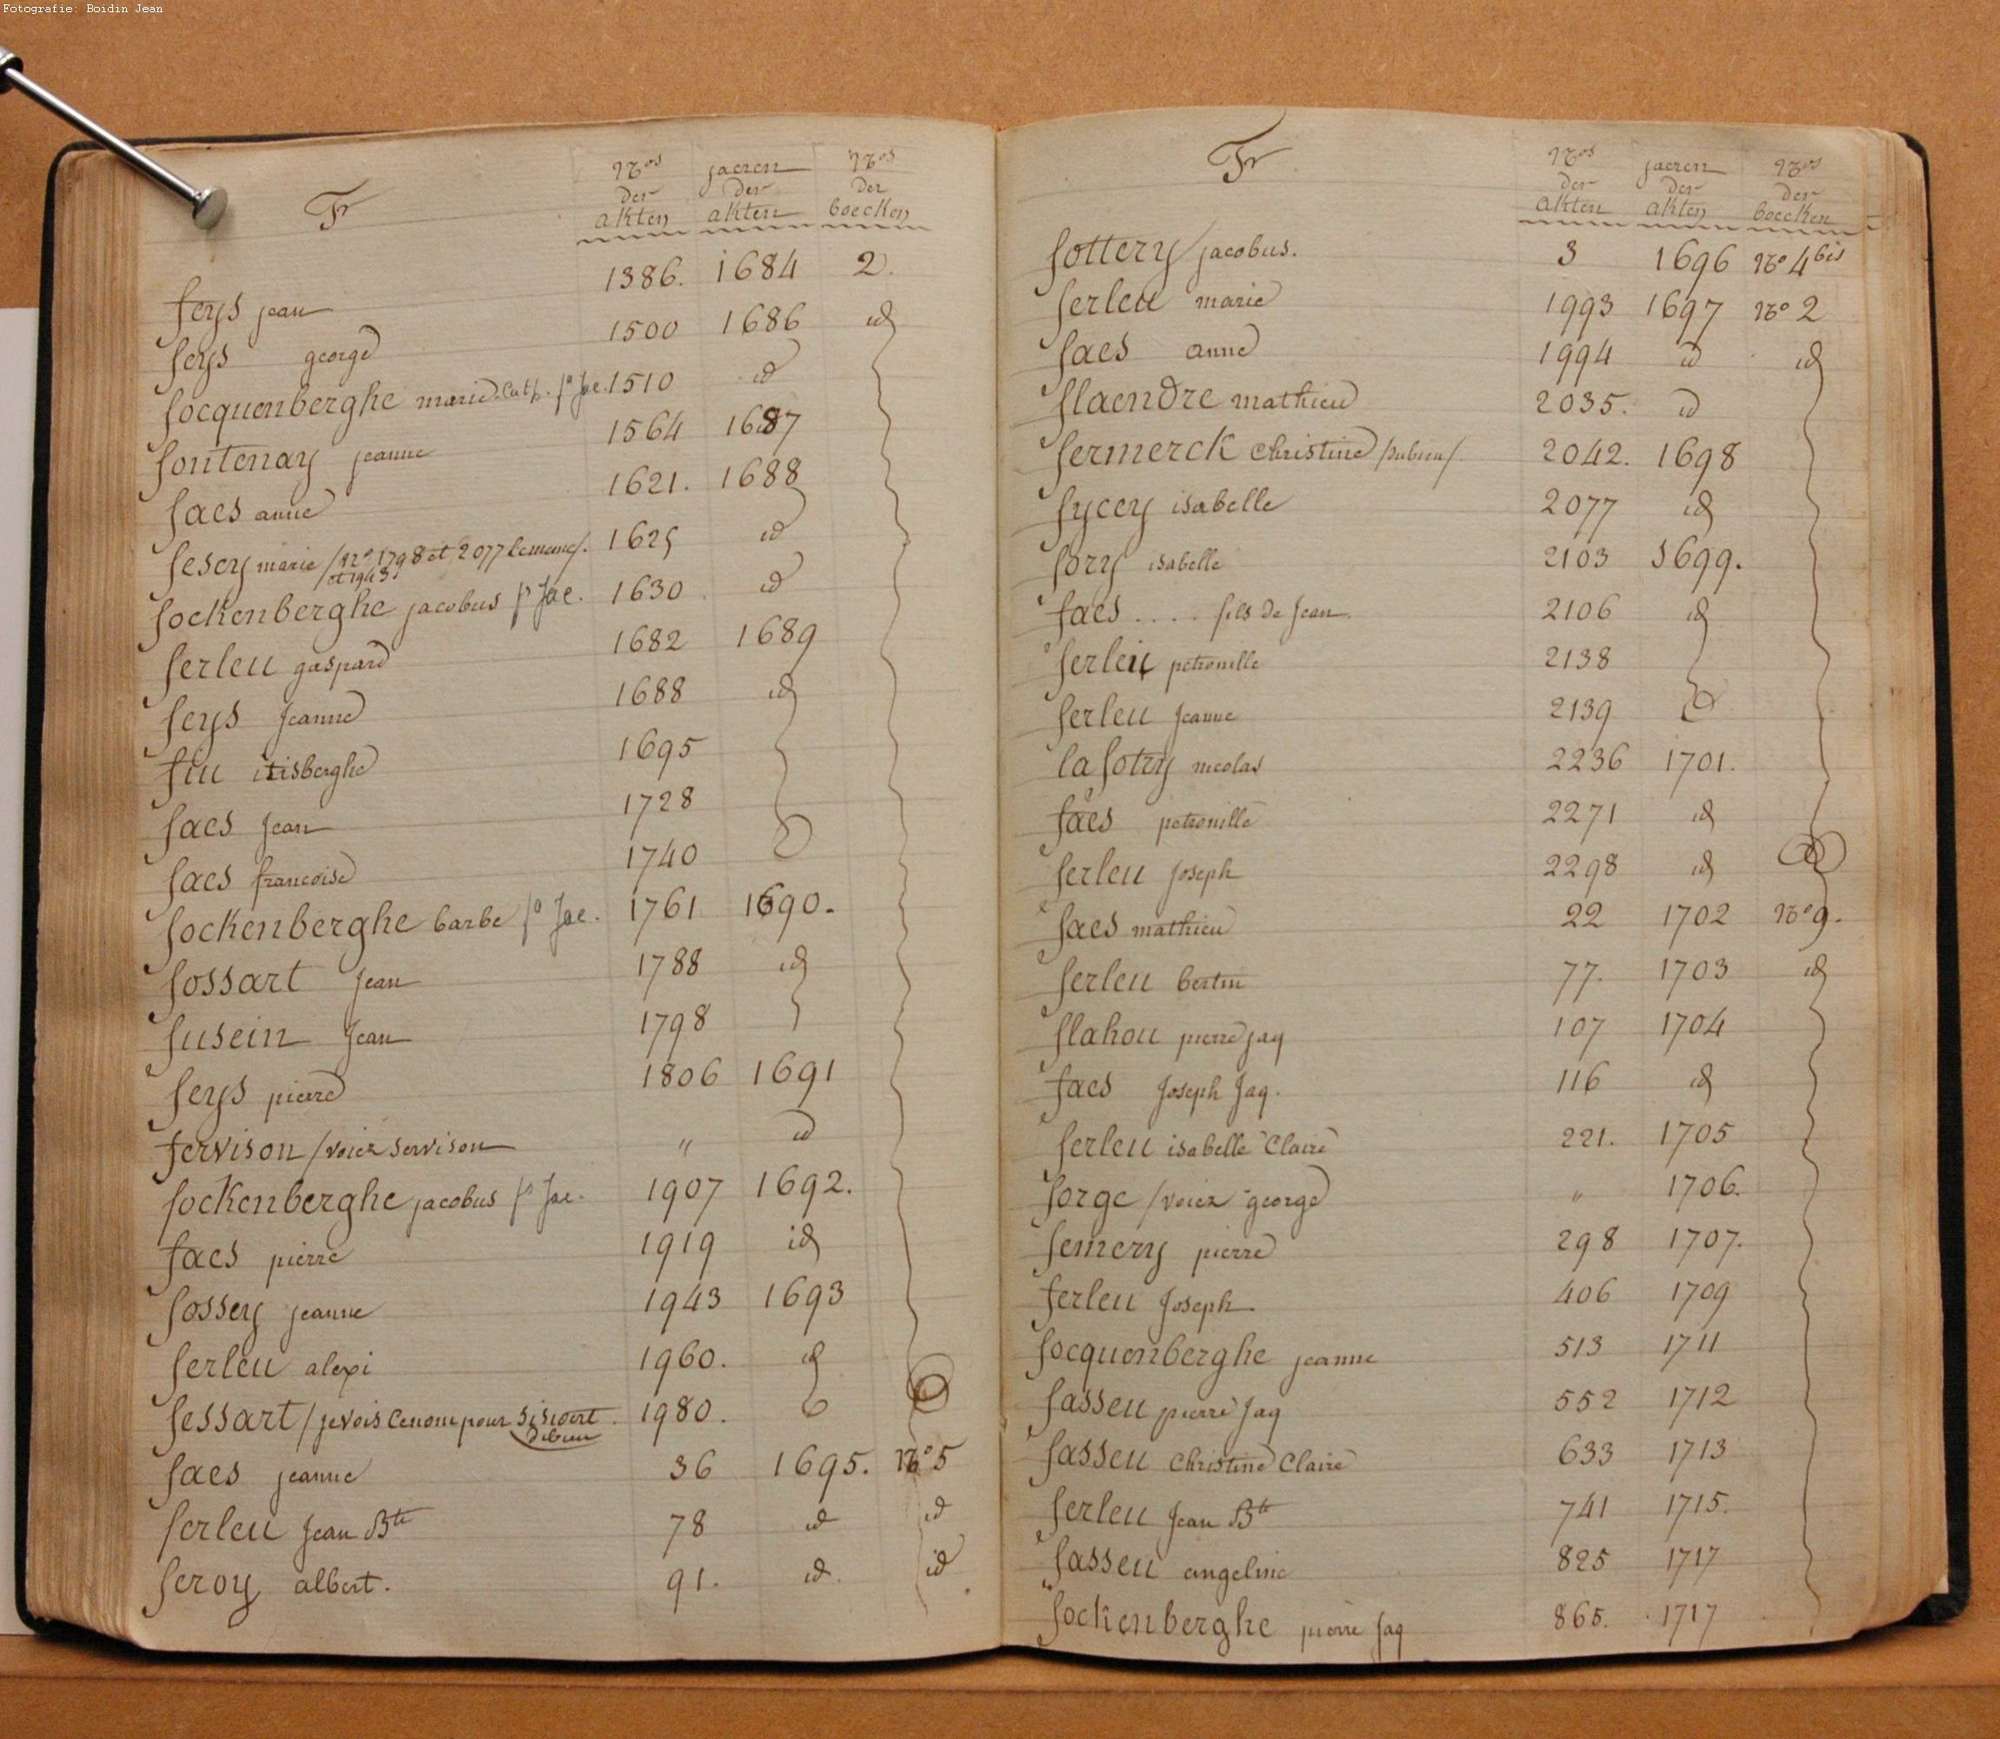 Fotografie: Boidin Jean
F
Nos der akten jaeren der akten Nos der boecken
feys jean 1386. 1684 2.
feys george 1500 1686 id
focquenberghe marie Cath. fa Jae. 1510 id
fontenay jeanne 1564 1687
faes anne 1621. 1688
fesey marie /no 1798 et 2077 lemême/. 1625 id
et 1943
fockenberghe jacobus fs Jae. 1630 id
ferleu gaspard 1682 1689
feys Jeanne 1688 id
fiu itisberghe 1695
faes Jean 1728
faes francoise 1740
fockenberghe barbe fa Jae. 1761 1690.
fossart Jean 1788 id
fusein Jean 1798
feys pierre 1806 1691
fervison /voiez servison " id
fockenberghe jacobus fs Jae. 1907 1692.
faes pierre 1919 id
fossey jeanne 1943 1693
ferleu alexi 1960. id
fessart /je vois Ce nom pour 1980.
faes jeanne 36 1695. No 5
ferleu Jean Bte 78 id id
feroy albert. 91. id. id
F
Nos der akten jaeren der akten Nos der boecken
fottery jacobus. 3 1696 No 4bis
ferleu marie 1993 1697 No 2
faes anne 1994 id id
flaendre mathieu 2035. id
fermerck Christine /Dubieu/. 2042. 1698
fycey isabelle 2077 id
fory isabelle 2103 1699.
faes .... fils de Jean 2106 id
ferleu petronille 2138
ferleu Jeanne 2139
la fotry nicolas 2236 1701.
faes petronille 2271 id
ferleu Joseph 2298 id
faes mathieu 22 1702 No 9.
ferleu bertin 77. 1703 id
flahou pierre jaq 107 1704
faes Joseph Jaq. 116 id
ferleu isabelle Claire 221. 1705
forge /voiez george " 1706.
femery pierre 298 1707.
ferleu Joseph 406 1709
focquenberghe jeanne 513 1711
fasseu pierre Jaq 552 1712
fasseu Christine Claire 633 1713
ferleu Jean Bte 741 1715.
fasseu angeline 825 1717
fockenberghe pierre Jaq 865. 1717